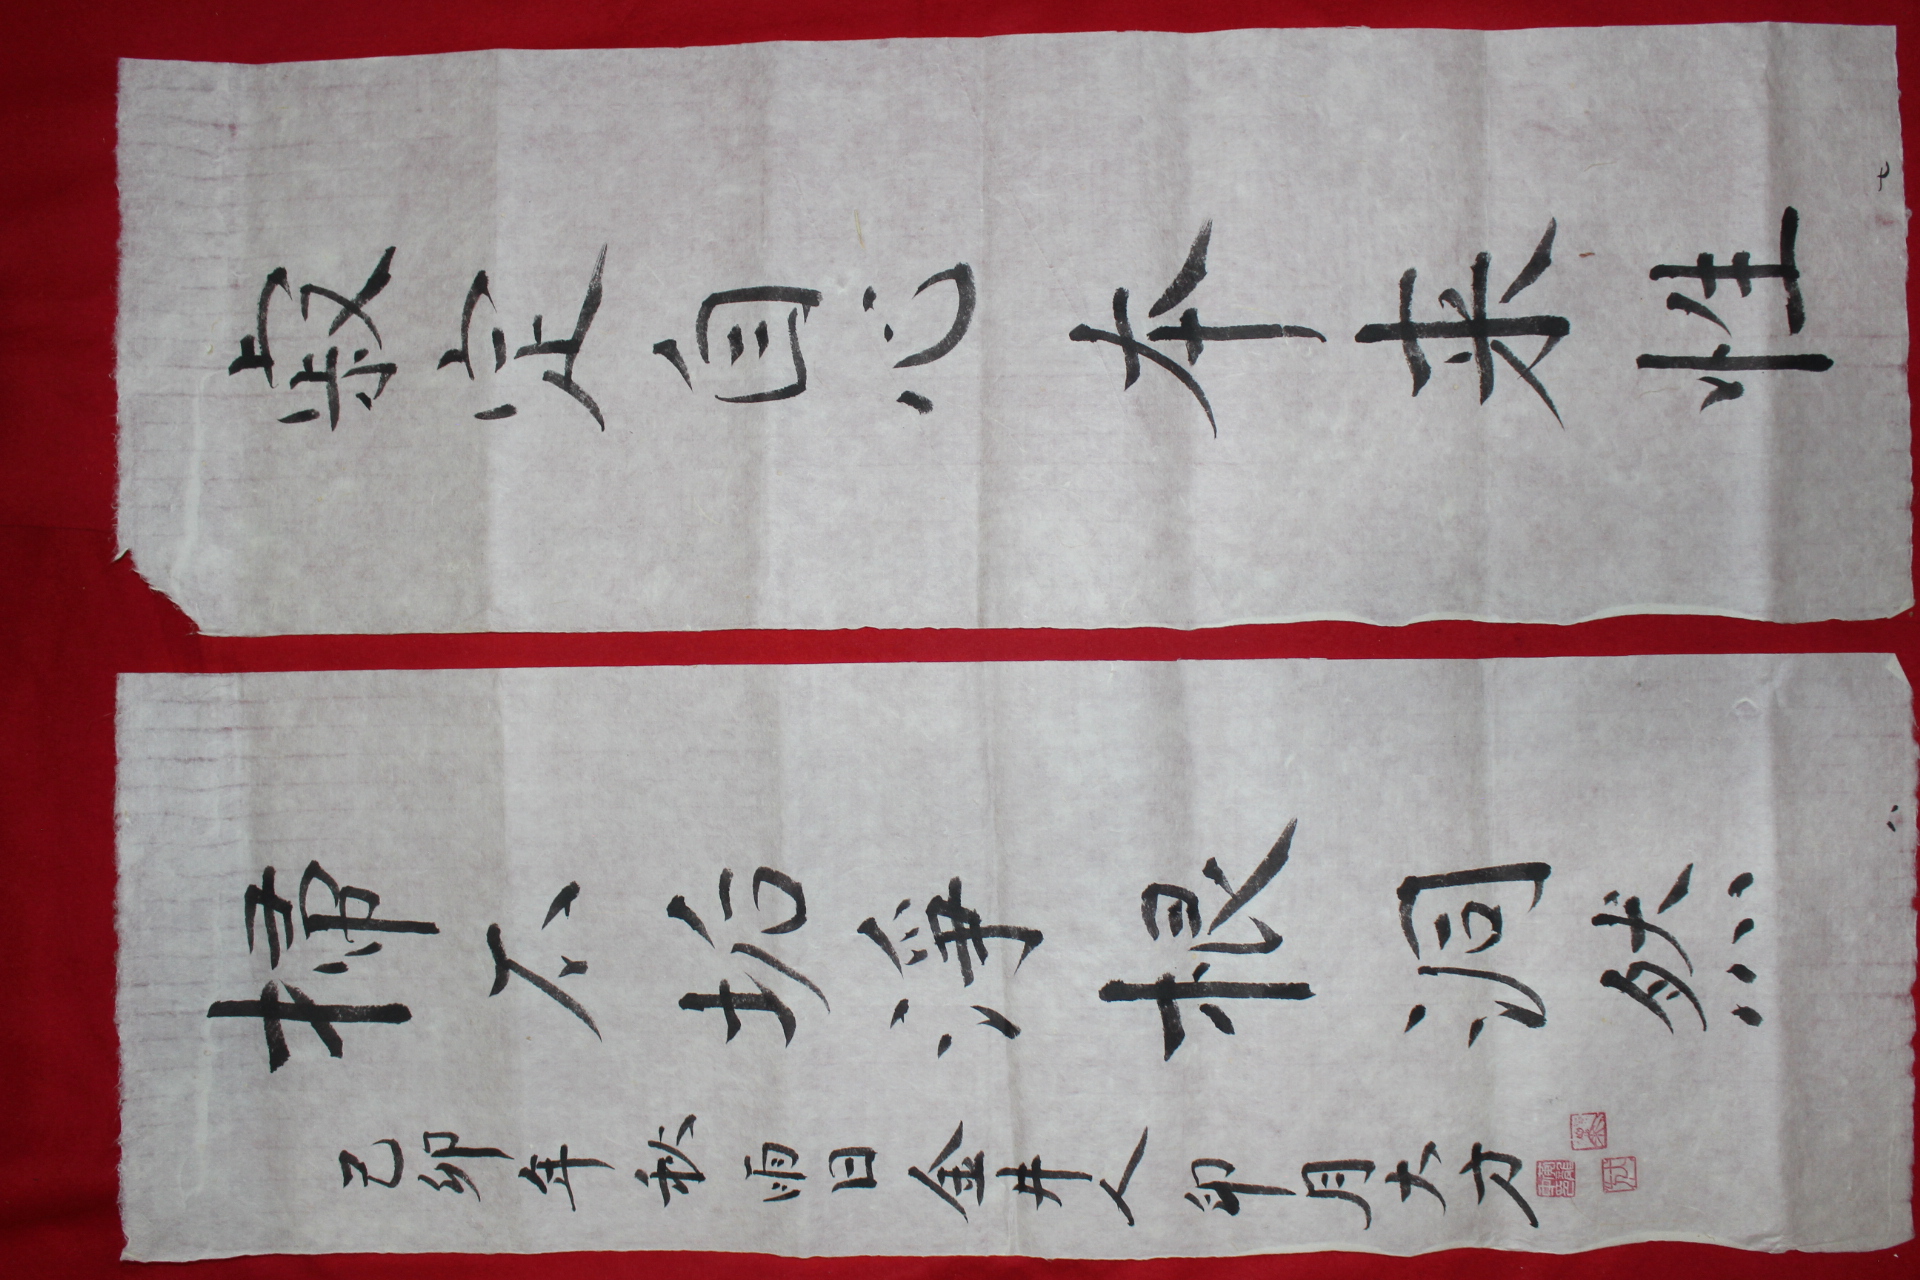 寂定自心本来性
七
掃不垢淨根洞然
己卯年秋雨日金井人印月大方
八